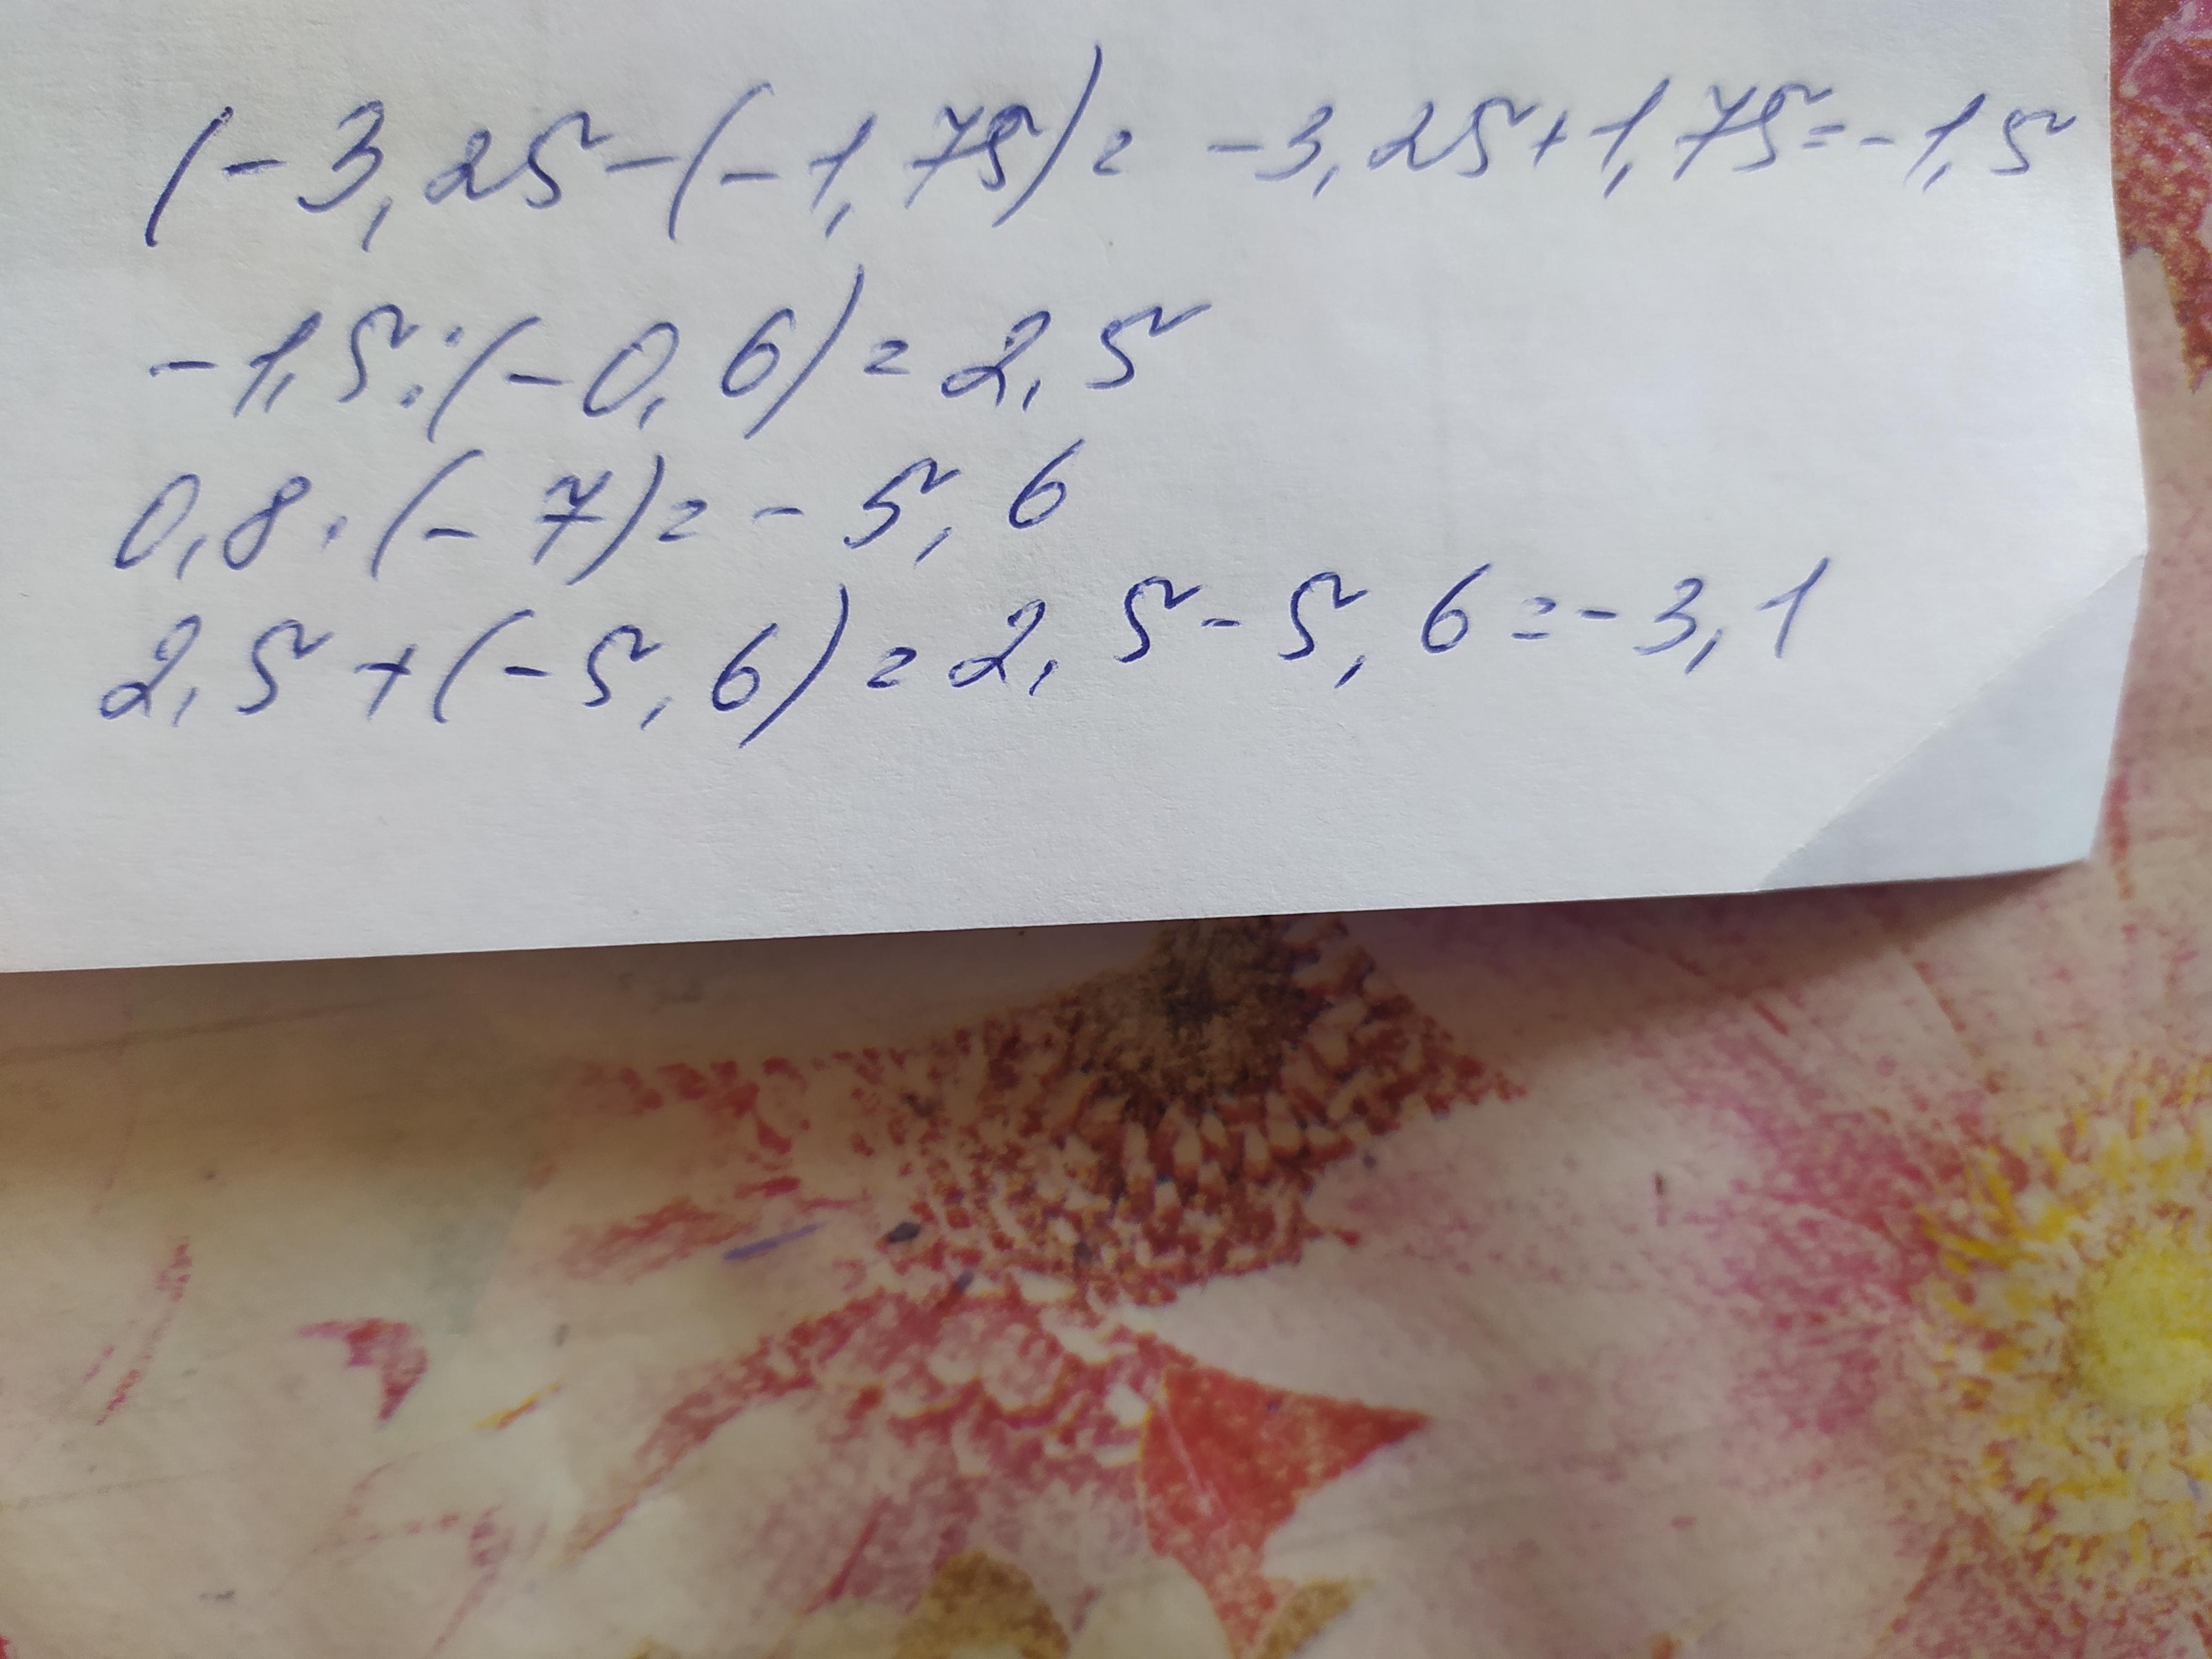 (-3,25-(-1,75)= -3,25+1,75=-1,5
-1,5:(-0,6)=2,5
0,8·(-7)=-5,6
2,5+(-5,6)=2,5-5,6=-3,1